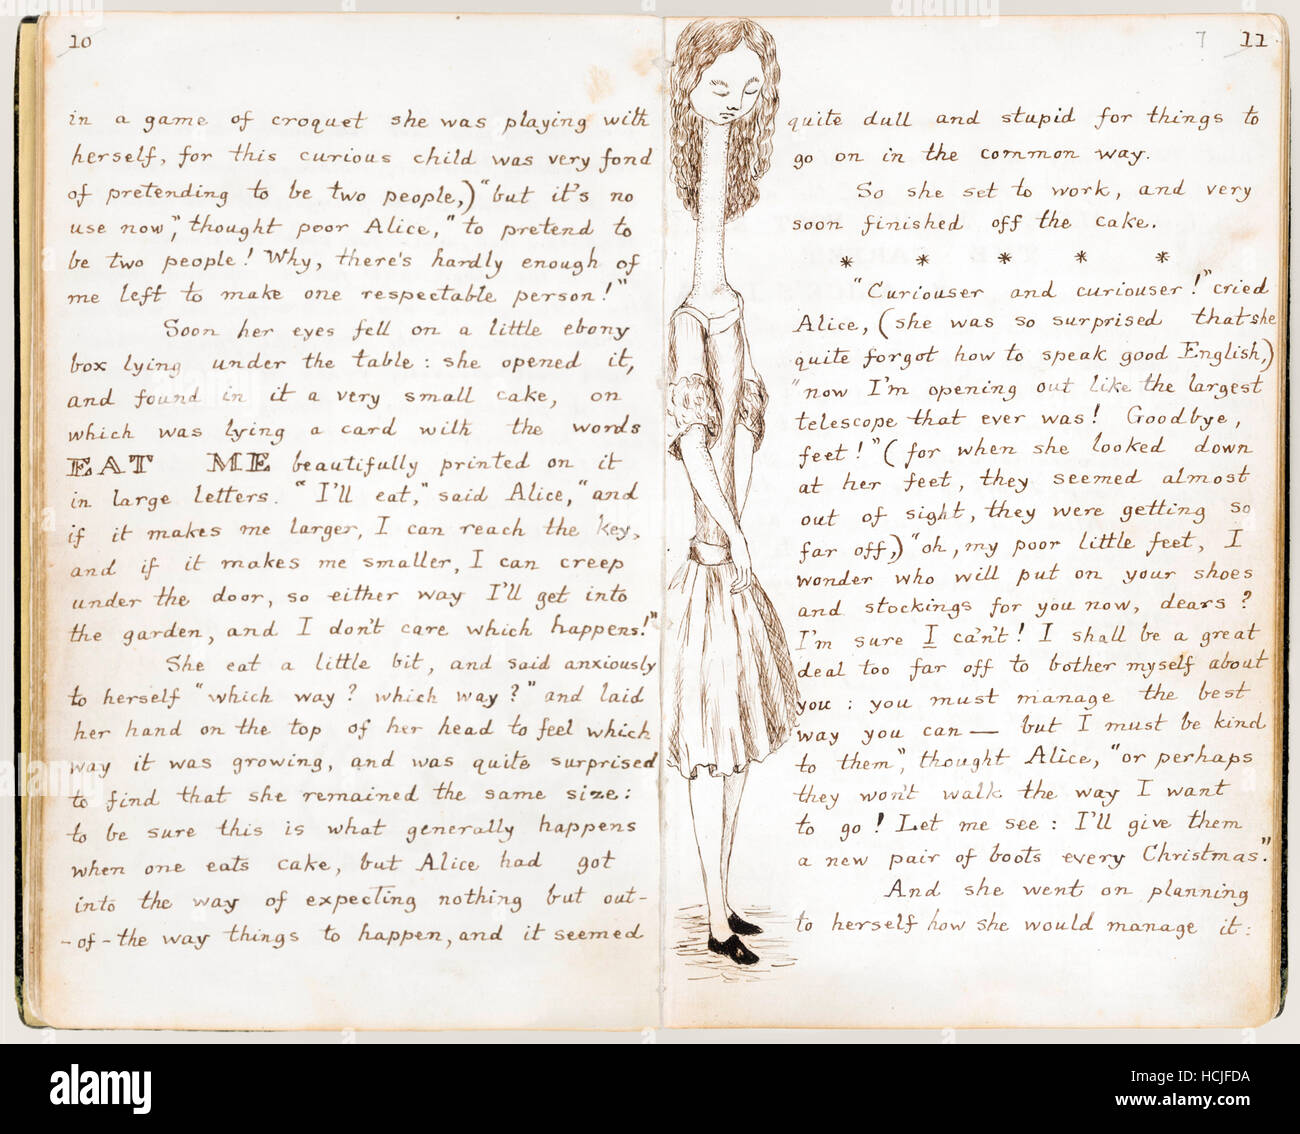 10
in a game of croquet she was playing with
herself, for this curious child was very fond
of pretending to be two people,) "but it's no
use now", thought poor Alice, "to pretend to
be two people! Why, there's hardly enough of
me left to make one respectable person!"
Soon her eyes fell on a little ebony
box lying under the table: she opened it,
and found in it a very small cake, on
which was lying a card with the words
EAT ME beautifully printed on it
in large letters. "I'll eat," said Alice, "and
if it makes me larger, I can reach the key,
and if it makes me smaller, I can creep
under the door, so either way I'll get into
the garden, and I don't care which happens!"
She eat a little bit, and said anxiously
to herself "which way? which way?" and laid
her hand on the top of her head to feel which
way it was growing, and was quite surprised
to find that she remained the same size:
to be sure this is what generally happens
when one eats cake, but Alice had got
into the way of expecting nothing but out-
-of-the way things to happen, and it seemed
7 11
quite dull and stupid for things to
go on in the common way.
So she set to work, and very
soon finished off the cake.
* * * * *
"Curiouser and curiouser!" cried
Alice, (she was so surprised that she
quite forgot how to speak good English,)
"now I'm opening out like the largest
telescope that ever was! Goodbye,
feet!" (for when she looked down
at her feet, they seemed almost
out of sight, they were getting so
far off,) "oh, my poor little feet, I
wonder who will put on your shoes
and stockings for you now, dears?
I'm sure I ca'n't! I shall be a great
deal too far off to bother myself about
you: you must manage the best
way you can — but I must be kind
to them", thought Alice, "or perhaps
they won't walk the way I want
to go! Let me see: I'll give them
a new pair of boots every Christmas."
And she went on planning
to herself how she would manage it:
alamy
alamy
Image ID: HCJFDA
www.alamy.com